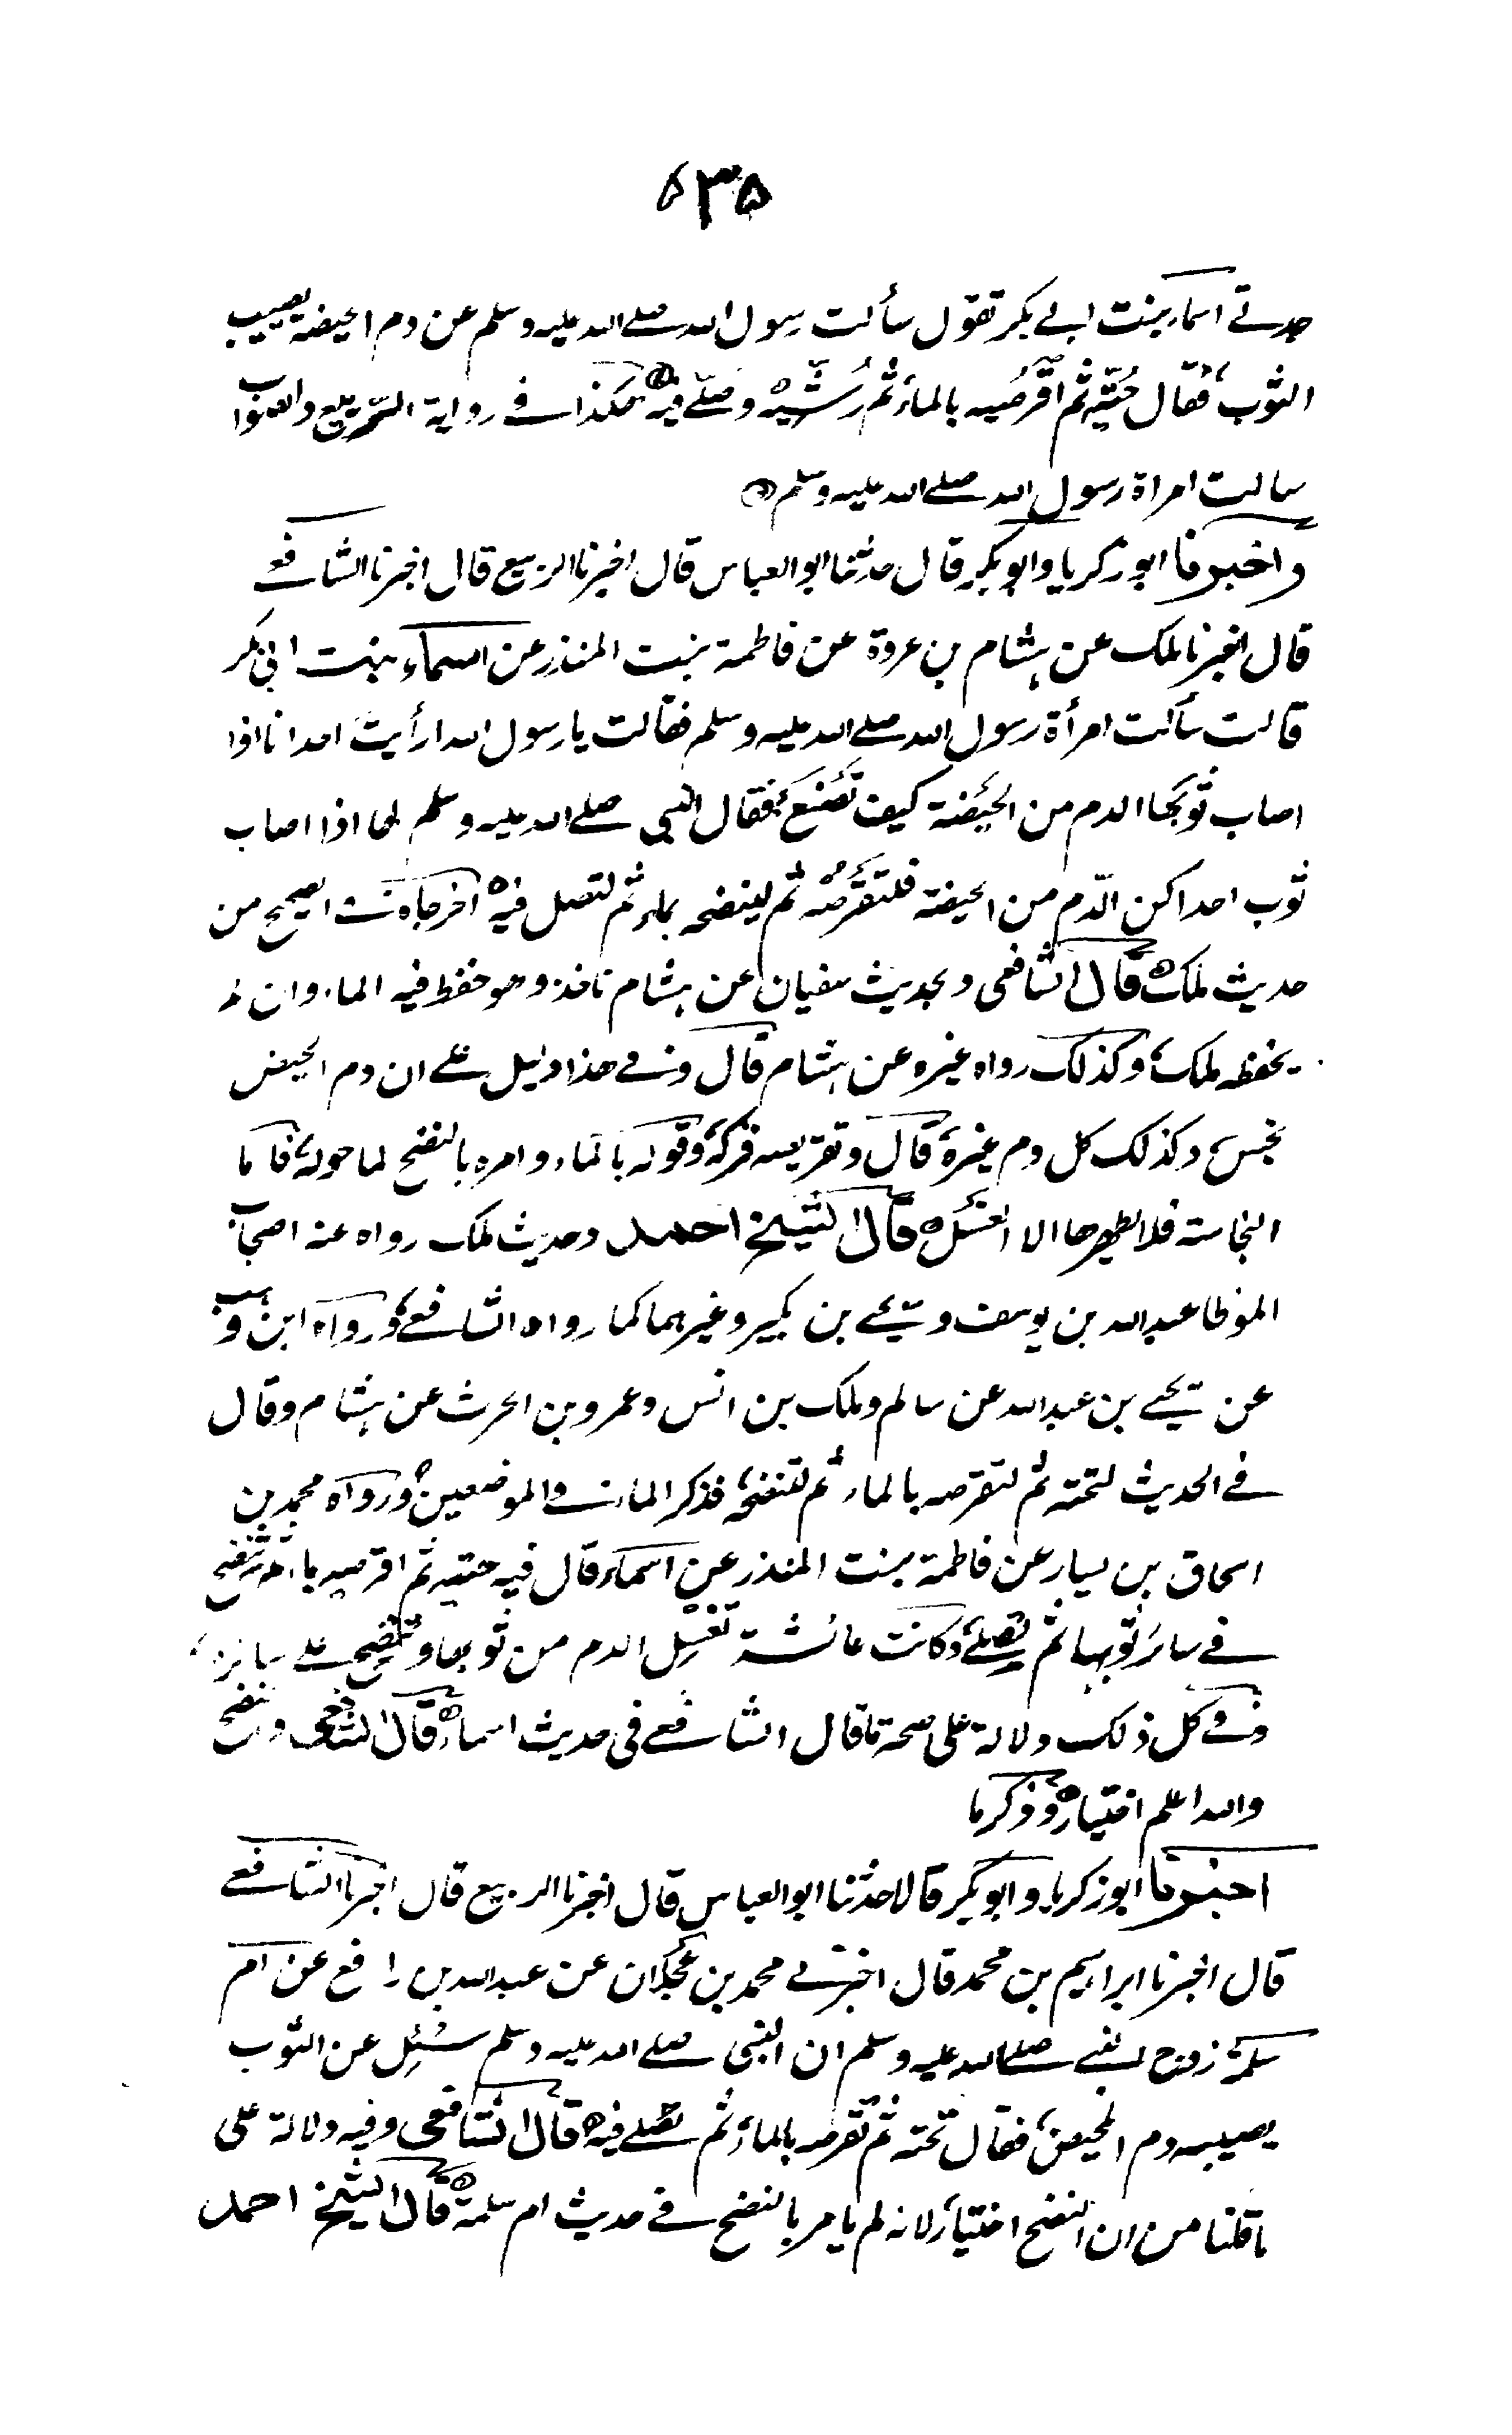 ٥٣٥
جدتي اسماء بنت ابي بكر تقول سألت رسول الله صلى الله عليه وسلم عن دم الحيضة يصيب
الثوب فقال حُتّيه ثم اقرُصيه بالماء ثم رُشّيه وصلّي فيه هكذا في رواية الربيع والصواب
سالت امراة رسول الله صلى الله عليه وسلم
واخبرنا ابو زكريا وابو بكر قال حدثنا ابو العباس قال اخبرنا الربيع قال اخبرنا الشافعي
قال اخبرنا ملك عن هشام بن عروة عن فاطمة بنت المنذر عن اسماء بنت ابي بكر
قالت سألت امرأة رسول الله صلى الله عليه وسلم فقالت يا رسول الله ارأيت احدانا اذا
اصاب ثوبها الدم من الحيضة كيف تصنع فقال النبي صلى الله عليه وسلم لها اذا اصاب
ثوب احداكن الدّم من الحيضة فلتقرُصه ثم لينضحه بماء ثم لتصل فيه اخرجاه في الصحيح من
حديث ملك قال الشافعي وبحديث سفيان عن هشام ناخذ وهو حفظ فيه الماء وان لم
يحفظه ملك وكذلك رواه غيره عن هشام قال وفي هذا دليل على ان دم الحيض
نجس وكذلك كل دم غيره قال وتقريصه فركه وقوله بالماء وامره بالنضح لما حوله فاما
النجاسة فلا يطهرها الا الغسل قال الشيخ احمد وحديث ملك رواه عنه اصحاب
الموطا عبد الله بن يوسف ويحيى بن بكير وغيرهما كما رواه الشافعي ورواه ابن وهب
عن يحيى بن عبد الله عن سالم وملك بن انس وعمرو بن الحرث عن هشام وقال
في الحديث لتحته ثم لتقرصه بالماء ثم لتنضحه فذكر الماء في الموضعين ورواه محمد بن
اسحاق بن يسار عن فاطمة بنت المنذر عن اسماء قال فيه حتيه ثم اقرصيه بماء ثم تنضح
في سائر ثوبها ثم تصلي وكانت عائشة تغسل الدم من ثوبها وتنضح على سائره
وفي كل ذلك دلالة على صحة ما قال الشافعي في حديث اسماء قال الشافعي والنضح
والله اعلم اختيار وذكر ما
اخبرنا ابو زكريا وابو بكر قالا حدثنا ابو العباس قال اخبرنا الربيع قال اخبرنا الشافعي
قال اخبرنا ابراهيم بن محمد قال اخبرني محمد بن عجلان عن عبد الله بن رافع عن ام
سلمة زوج النبي صلى الله عليه وسلم ان النبي صلى الله عليه وسلم سُئِل عن الثوب
يصيبه دم الحيض فقال تحته ثم تقرصه بالماء ثم تصلي فيه قال الشافعي وفيه دلالة على
ما قلنا من ان النضح اختيار لانه لم يامر بالنضح في حديث ام سلمة قال الشيخ احمد